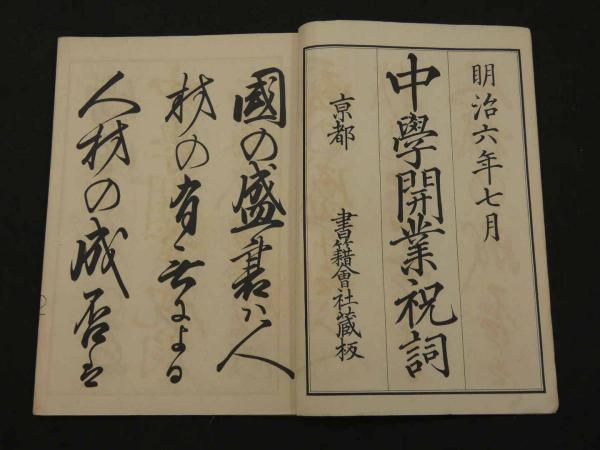 明治六年七月
中學開業祝詞
京都 書籍會社蔵板
國の盛衰ハ人
材の有無による
人材の成否は